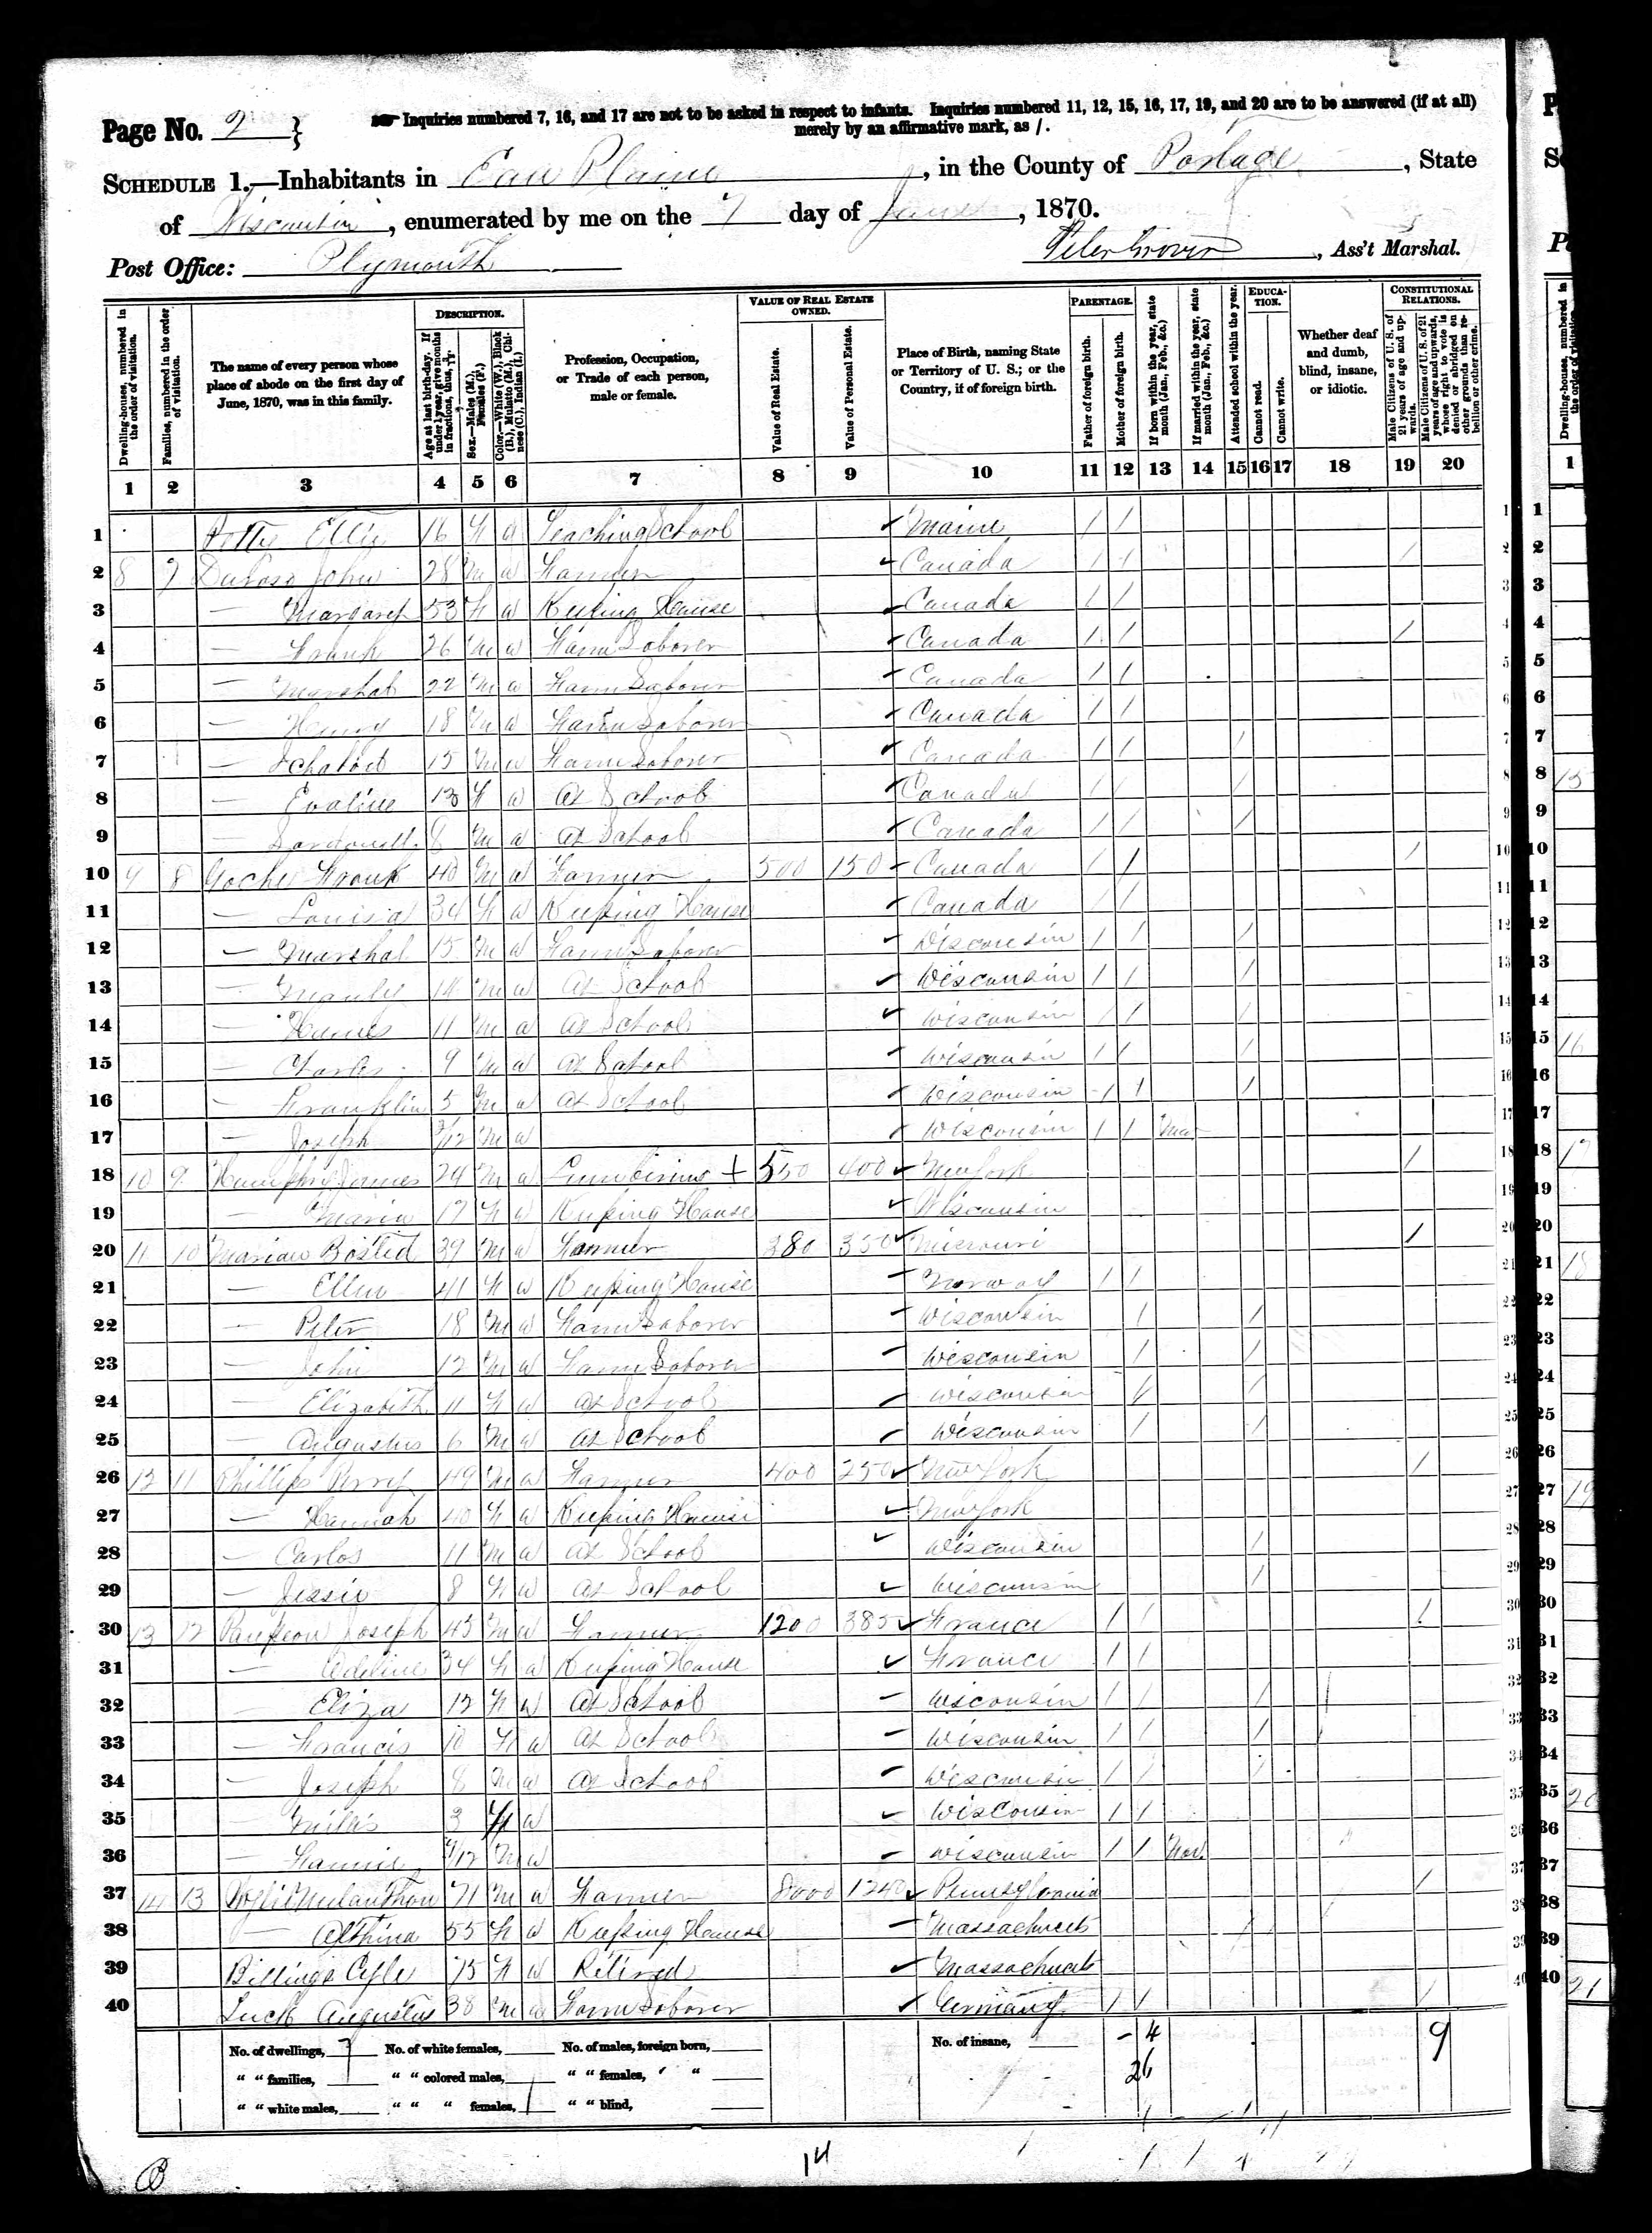 Page No. 2 }
Inquiries numbered 7, 16, and 17 are not to be asked in respect to infants. Inquiries numbered 11, 12, 15, 16, 17, 19, and 20 are to be answered (if at all)
merely by an affirmative mark, as /.
SCHEDULE 1.—Inhabitants in Eau Plaine, in the County of Portage, State
of Wisconsin, enumerated by me on the 7 day of June, 1870.
Post Office: Plymouth
Peter Grover, Ass't Marshal.
Dwelling-houses, numbered in the order of visitation.
Families, numbered in the order of visitation.
The name of every person whose place of abode on the first day of June, 1870, was in this family.
DESCRIPTION.
Age at last birth-day. If under 1 year, give months in fractions, thus, 3/12.
Sex.—Males (M.), Females (F.)
Color.—White (W.), Black (B.), Mulatto (M.), Chinese (C.), Indian (I.)
Profession, Occupation, or Trade of each person, male or female.
VALUE OF REAL ESTATE OWNED.
Value of Real Estate.
Value of Personal Estate.
Place of Birth, naming State or Territory of U. S.; or the Country, if of foreign birth.
PARENTAGE.
Father of foreign birth.
Mother of foreign birth.
If born within the year, state month (Jan., Feb., &c.)
If married within the year, state month (Jan., Feb., &c.)
Attended school within the year.
EDUCATION.
Cannot read.
Cannot write.
Whether deaf and dumb, blind, insane, or idiotic.
CONSTITUTIONAL RELATIONS.
Male Citizens of U. S. of 21 years of age and upwards.
Male Citizens of U. S. of 21 years of age and upwards, whose right to vote is denied or abridged on other grounds than rebellion or other crime.
1 2 3 4 5 6 7 8 9 10 11 12 13 14 15 16 17 18 19 20
1 Ellie 16 F W Teaching School Maine / /
2 8 7 John 28 M W Farmer Canada / / /
3 — Margaret 53 F W Keeping House Canada / /
4 — Frank 26 M W Farm Laborer Canada / / /
5 — Marshal 22 M W Farm Laborer Canada / /
6 — Henry 18 M W Farm Laborer Canada / /
7 — 15 M W Farm Laborer Canada / / /
8 — Evaline 13 F W At School Canada / / /
9 — 8 M W At School Canada / / /
10 9 8 Frank 40 M W Farmer 500 150 Canada / / /
11 — Louisa 34 F W Keeping House Canada / /
12 — Marshal 15 M W Farm Laborer Wisconsin / / /
13 — 14 M W At School Wisconsin / / /
14 — 11 M W At School Wisconsin / / /
15 — Charles 9 M W At School Wisconsin / / /
16 — Franklin 5 M W At School Wisconsin / / /
17 — Joseph 3/12 M W Wisconsin / / Mar
18 10 9 James 24 M W Lumbering + 550 400 New York /
19 — Maria 17 F W Keeping House Wisconsin
20 11 10 39 M W Farmer 380 350 Missouri /
21 — Ellen 41 F W Keeping House Norway / /
22 — Peter 18 M W Farm Laborer Wisconsin / /
23 — John 12 M W Farm Laborer Wisconsin / /
24 — Elizabeth 11 F W At School Wisconsin / /
25 — Augustus 6 M W At School Wisconsin / /
26 12 11 Phillips Perry 49 M W Farmer 400 250 New York /
27 — Hannah 40 F W Keeping House New York
28 — Carlos 11 M W At School Wisconsin /
29 — Jessie 8 F W At School Wisconsin /
30 13 12 Joseph 43 M W Farmer 1200 385 France / / /
31 — Adeline 34 F W Keeping House France / /
32 — Eliza 12 F W At School Wisconsin / / /
33 — Francis 10 F W At School Wisconsin / / /
34 — Joseph 8 M W At School Wisconsin / / /
35 — 3 F W Wisconsin / /
36 — M W Wisconsin / / Nov.
37 14 13 71 M W Farmer 8000 1240 Pennsylvania /
38 — 55 F W Keeping House Massachusets
39 Billings 75 F W Retired Massachusets
40 Luck Augustus 38 M W Farm Laborer Germany / / /
No. of dwellings, 7 No. of white females, No. of males, foreign born, No. of insane, - 4 9
" " families, " " colored males, " " females, " " 26
" " white males, " " " females, " " blind,
14